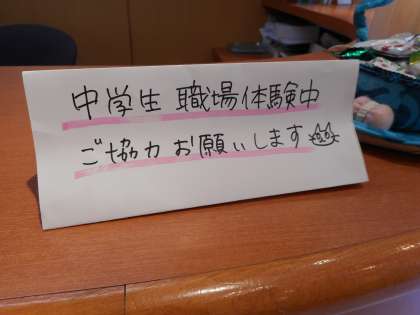 中学生 職場体験中
ご協力 お願いします